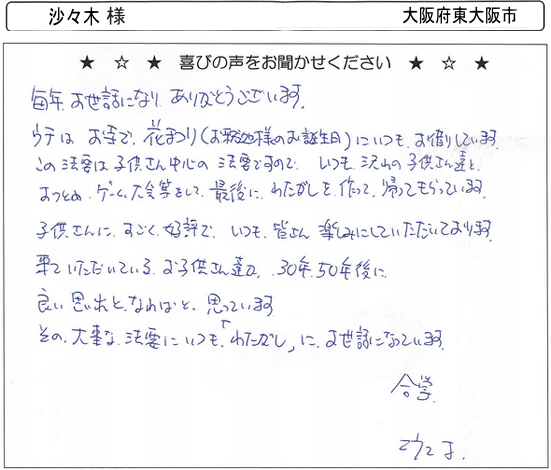 沙々木 様
大阪府東大阪市
★ ☆ ★ 喜びの声をお聞かせください ★ ☆ ★
毎年、お世話になり、ありがとうございます。
ウチは、お寺で、花まつり(お釈迦様のお誕生日)にいつも、お借りしています。
この法要は子供さん中心の法要ですので、いつも、沢山の子供さん達と、
おつとめ、ゲーム大会等をして、最後に、わたがしを作って、帰ってもらっています。
子供さんに、すごく、好評で、いつも、皆さん 楽しみにしていただいております。
来ていただいている、お子供さん達が、30年、50年後に
良い思い出と、なればと、思っています
その、大事な、法要にいつも、「わたがし」に、お世話になっています。
合掌